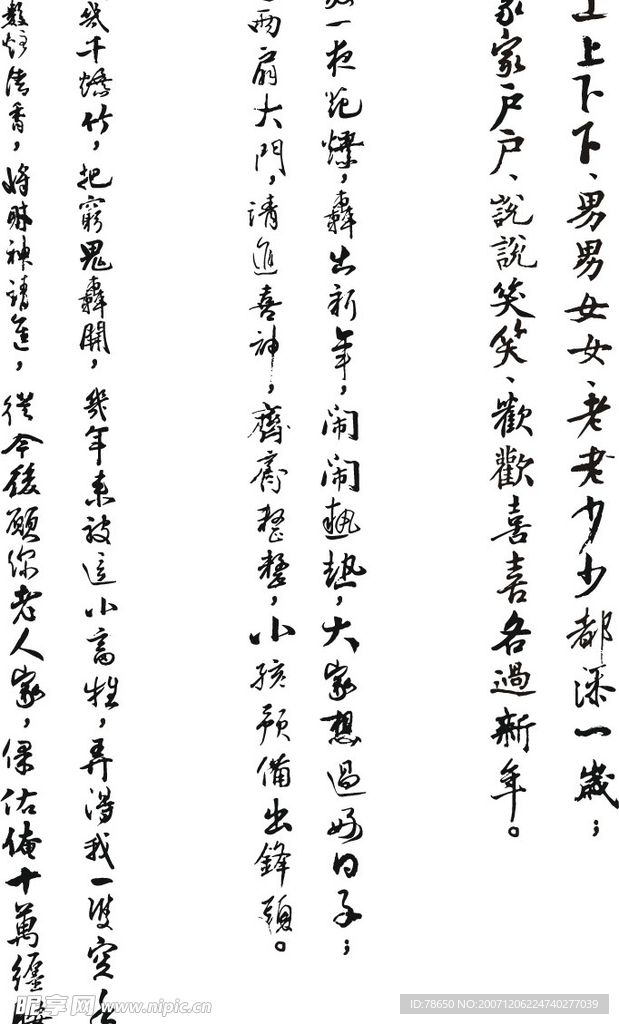 上上下下、男男女女、老老少少都添一歲；
家家户户、説説笑笑、歡歡喜喜各過新年。
一夜炮爆，轟出新年，闹闹熱熱，大家想過好日子；
两扇大門，請進喜神，齊齊整整，小孩預備出鋒頭。
幾千爆竹，把窮鬼轟開，幾年來被這小畜牲，弄得我一雙空
數炷清香，將財神請進，從今後願你老人家，保佑俺十萬纏腰
昵享网 www.nipic.cn
ID:78650 NO:20071206224740277039